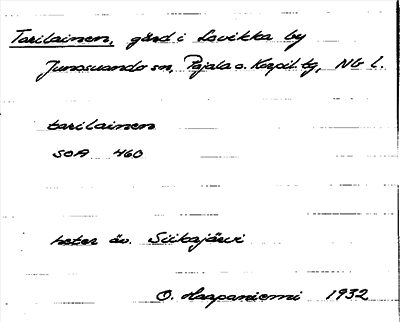 Tarilainen, gård i Lovikka by
Junosuando sn, Pajala o. Korpil. tg, Nb l.
tarilainen
SOA 460
heter äv. Siikajärvi
O. Haapaniemi 1932